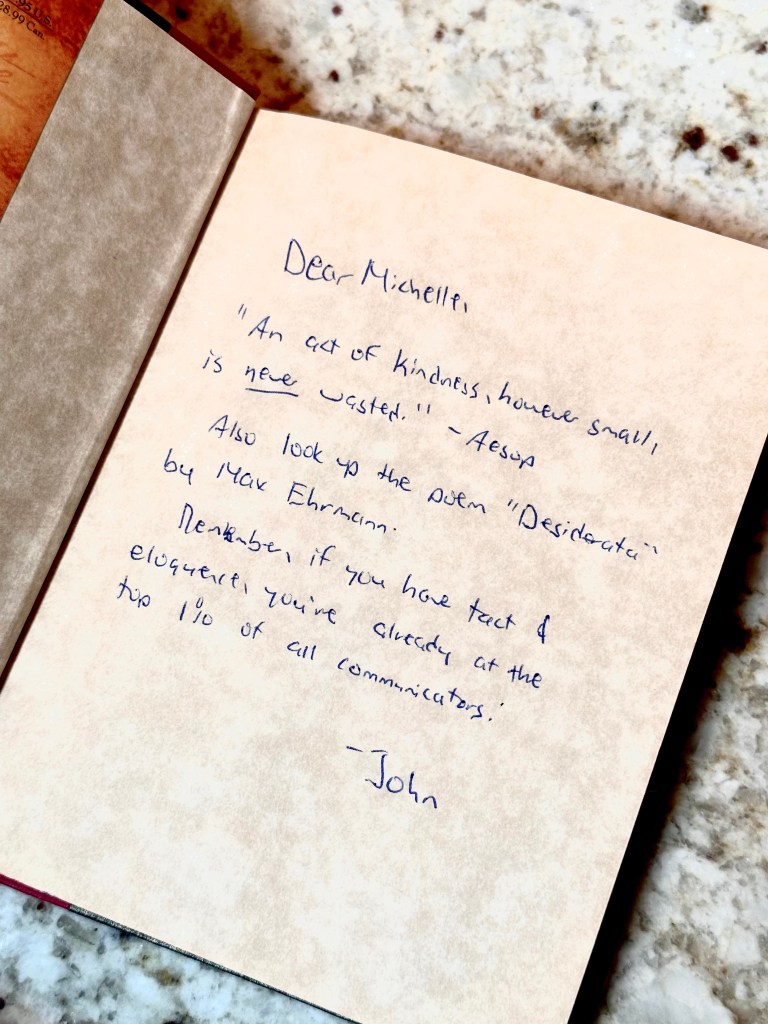 .95 U.S.
28.99 Can.
Dear Michelle,
"An act of kindness, however small,
is never wasted." -Aesop
Also look up the poem "Desiderata"
by Max Ehrmann.
Remember, if you have tact &
eloquence, you're already at the
top 1% of all communicators!
-John